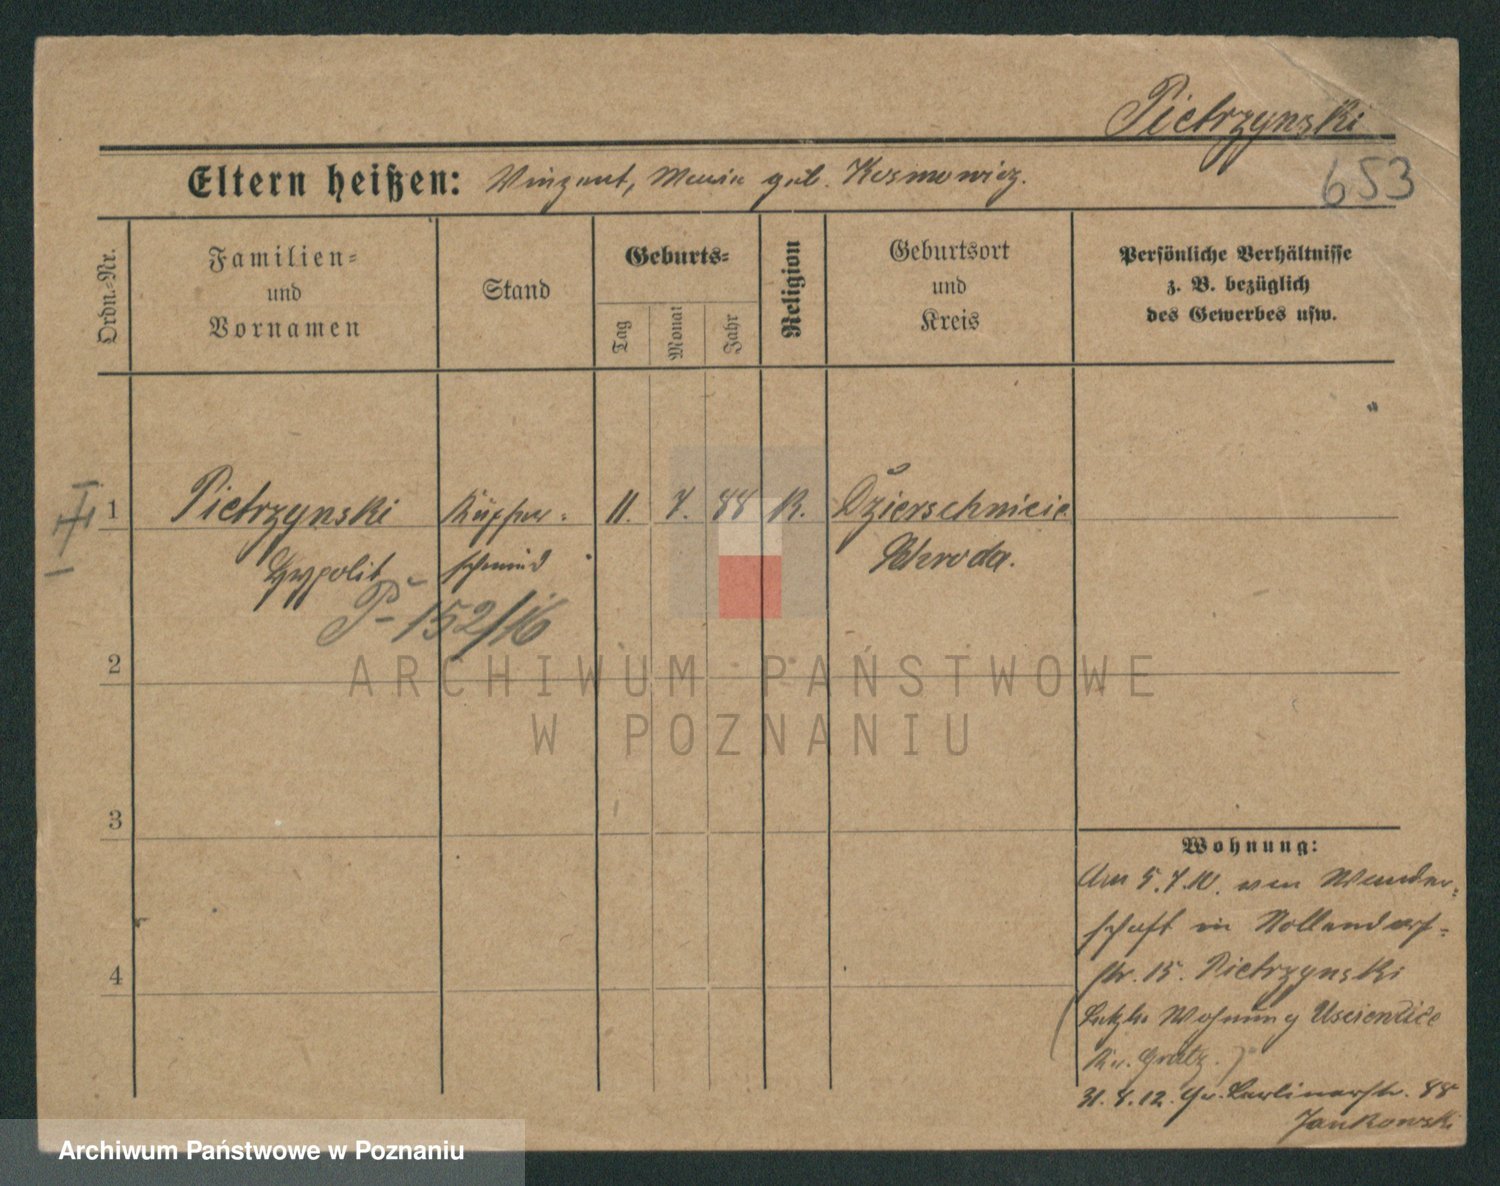 Pietrzynski
653
Eltern heißen: Vinzent, Maria geb. Kosmowicz.
Ordn.-Nr.
Familien-
und
Vornamen
Stand
Geburts-
Tag
Monat
Jahr
Religion
Geburtsort
und
Kreis
Persönliche Verhältnisse
z. B. bezüglich
des Gewerbes usw.
1
Pietrzynski
Kupfer-
11. 7. 88 K.
Dzierschnicie
Hypolit
schmied
Schroda.
P-152/16
2
ARCHIWUM PAŃSTWOWE
W POZNANIU
3
4
Wohnung:
Am 5.7.10. von Wander-
schaft in Nollendorf-
str. 15. Pietrzynski
Letzte Wohnung Uscienčice
Kr. Grätz.)
31.8.12. Gr. Berlinerstr. 88
Jankowski
Archiwum Państwowe w Poznaniu